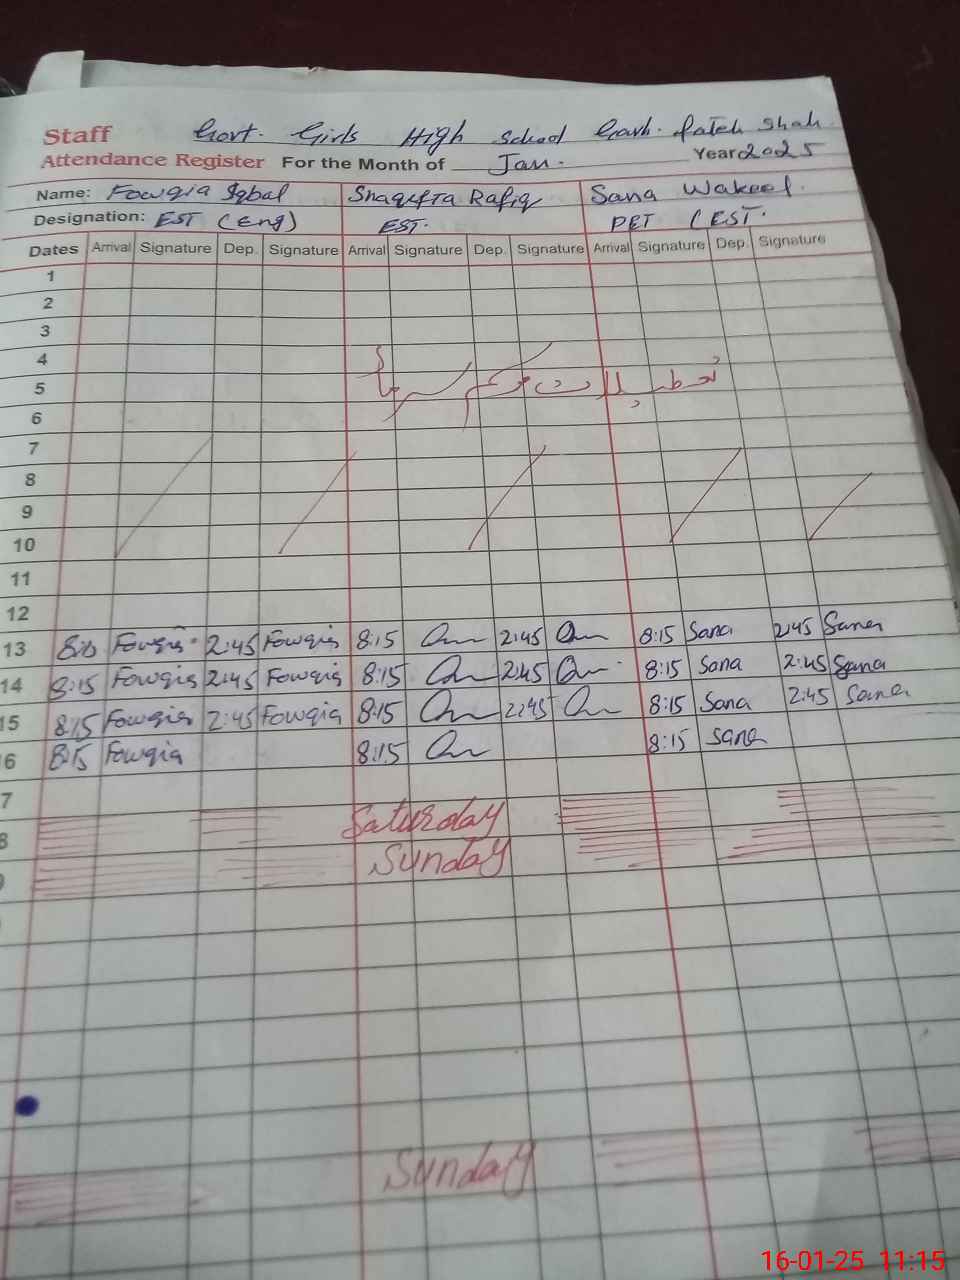 Staff Govt. Girls High School Garh. Fateh Shah.
Attendance Register For the Month of Jan. Year 2025
Name: Fowqia Iqbal Shagufta Rafiq Sana Wakeel.
Designation: EST (Eng) EST. PET (EST.
Dates Arrival Signature Dep. Signature Arrival Signature Dep. Signature Arrival Signature Dep. Signature
1
2
3
4
5 تعطیلات موسم سرما
6
7
8
9
10
11
12
13 Fowqia 2:45 Fowqia 8:15 2:45 8:15 Sana 2:45 Sana
14 8:15 Fowqia 2:45 Fowqia 8:15 2:45 8:15 Sana 2:45 Sana
15 8:15 Fowqia 2:45 Fowqia 8:15 2:45 8:15 Sana 2:45 Sana
6 8:15 Fowqia 8:15 8:15 Sana
7
8 Saturday
9 Sunday
Sunday
16-01-25 11:15